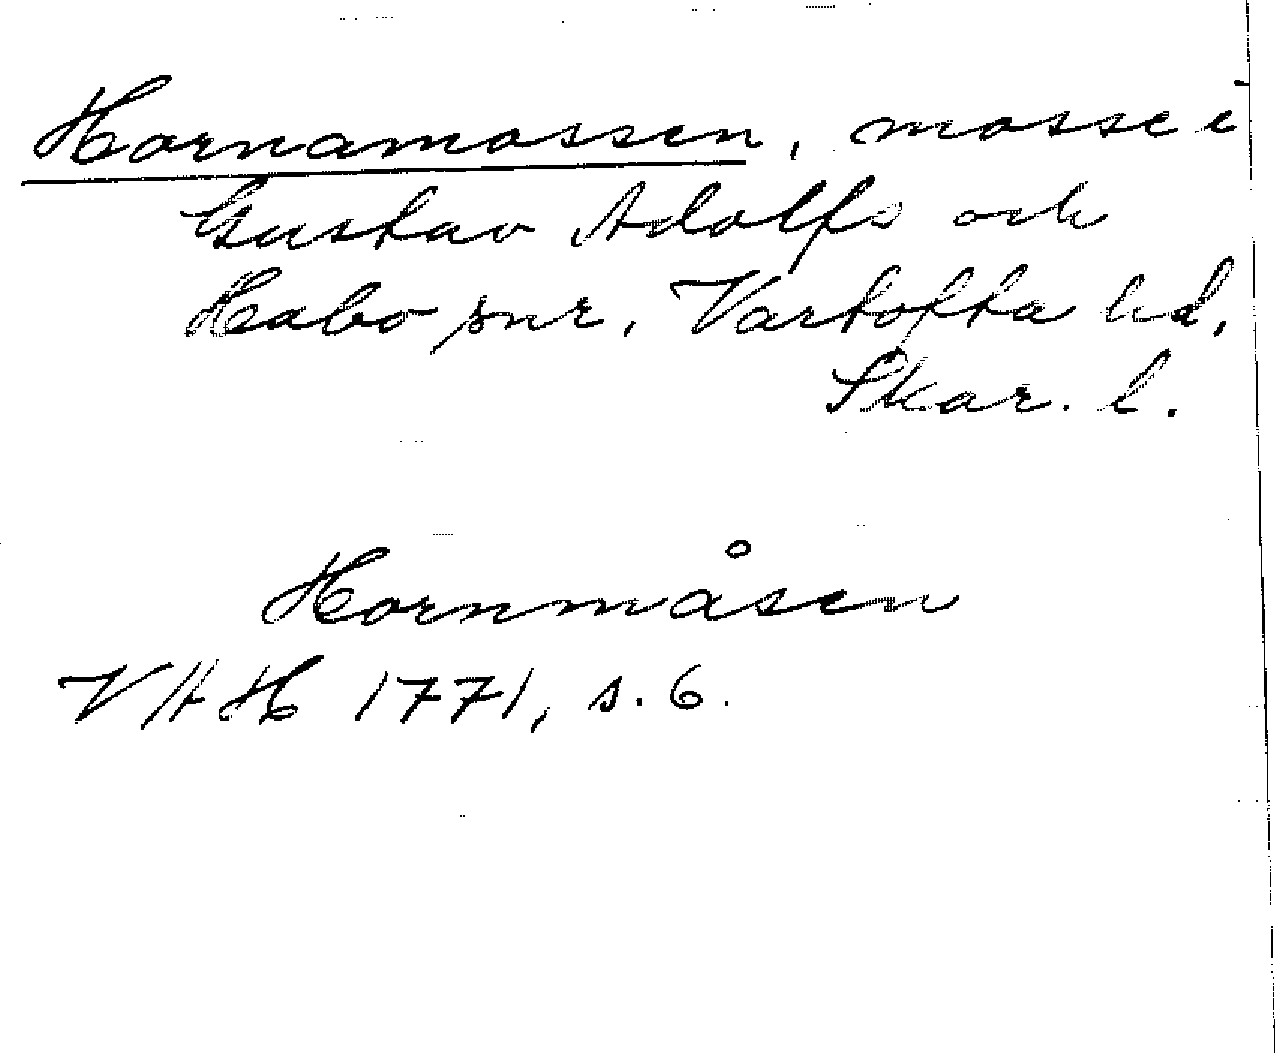 Hornamossen, mosse i
Gustav Adolfs och
Habo snr, Vartofta hd,
Skar. l.
Hornmåsen
VAH 1771, s. 6.